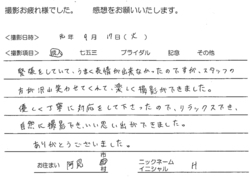 撮影お疲れ様でした。　感想をお願いいたします。
<撮影日時>　R1年　9月　17日(火)
<撮影>　成人　七五三　ブライダル　記念　その他
緊張をしていて、うまく表情が出来なかったのですが、スタッフの
方が沢山笑わせてくれて、楽しく撮影ができました。
優しく丁寧に対応をして下さったので、リラックスでき、
自然に撮影でき、いい思い出ができました。
ありがとうございました。
お住まい　阿見　市 町 村　ニックネーム イニシャル　H